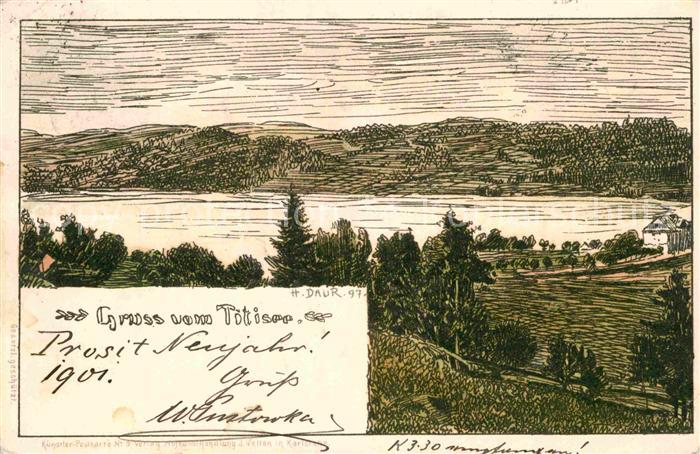 H. DAUR. 97.
Gruss vom Titisee.
Prosit Neujahr!
1901. Gruß
Gesetzl. geschützt.
Künstler-Postkarte No 9 Verlag Hofkunsthandlung J. Velten in Karlsruhe
K 3.30